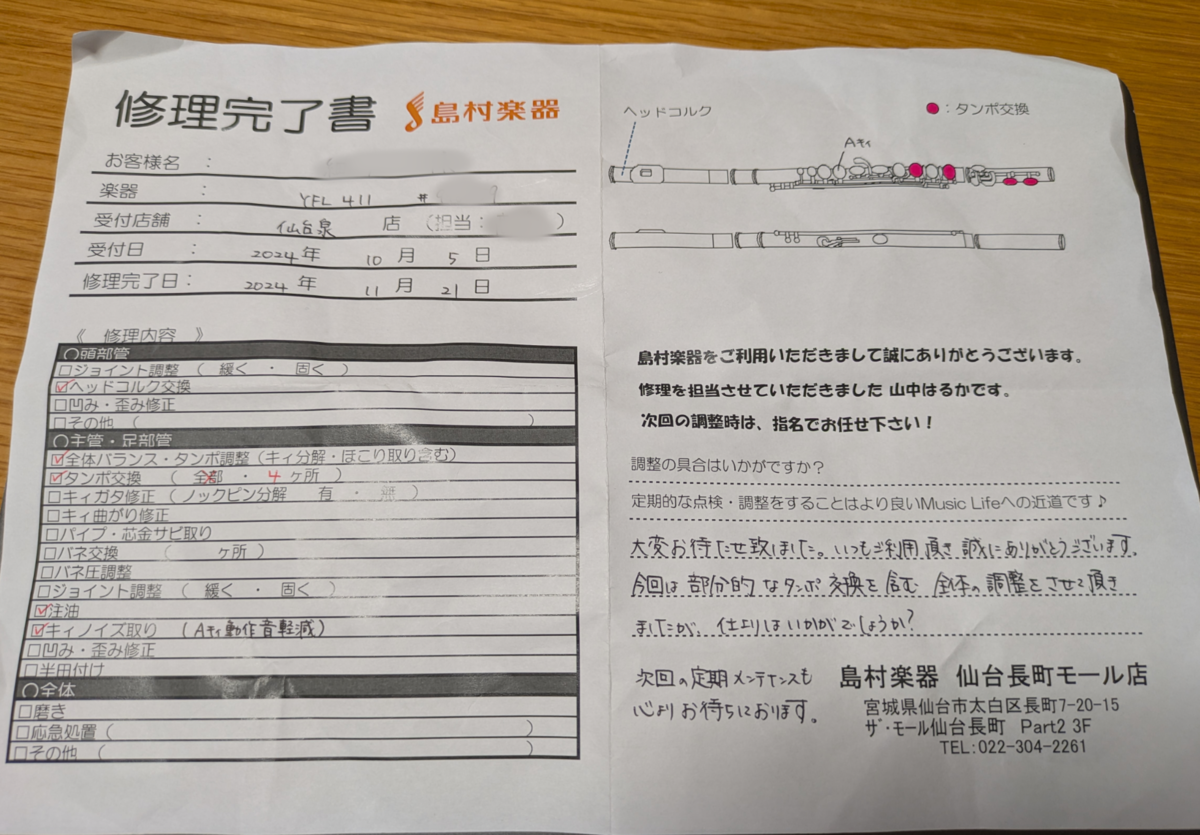 修理完了書 島村楽器
お客様名 :
楽器 : YFL 411 #
受付店舗 : 仙台泉 店 (担当: )
受付日 : 2024年 10月 5日
修理完了日: 2024年 11月 21日
《 修理内容 》
○頭部管
□ジョイント調整 ( 緩く ・ 固く )
☑ヘッドコルク交換
□凹み・歪み修正
□その他 ( )
○主管・足部管
☑全体バランス・タンポ調整(キィ分解・ほこり取り含む)
☑タンポ交換 ( 全部 ・ 4 ヶ所 )
□キィガタ修正 (ノックピン分解 有 ・ 無 )
□キィ曲がり修正
□パイプ・芯金サビ取り
□バネ交換 ( ヶ所 )
□バネ圧調整
□ジョイント調整 ( 緩く ・ 固く )
☑注油
☑キィノイズ取り (Aキィ動作音軽減)
□凹み・歪み修正
□半田付け
○全体
□磨き
□応急処置 ( )
□その他 ( )
ヘッドコルク
●:タンポ交換
Aキィ
島村楽器をご利用いただきまして誠にありがとうございます。
修理を担当させていただきました 山中はるかです。
次回の調整時は、指名でお任せ下さい!
調整の具合はいかがですか?
定期的な点検・調整をすることはより良いMusic Lifeへの近道です♪
大変お待たせ致しました。いつもご利用頂き誠にありがとうございます。
今回は部分的なタンポ交換を含む 全体の調整をさせて頂き
ましたが、仕上りはいかがでしょうか?
次回の定期メンテナンスも
心よりお待ちしております。
島村楽器 仙台長町モール店
宮城県仙台市太白区長町7-20-15
ザ・モール仙台長町 Part2 3F
TEL:022-304-2261